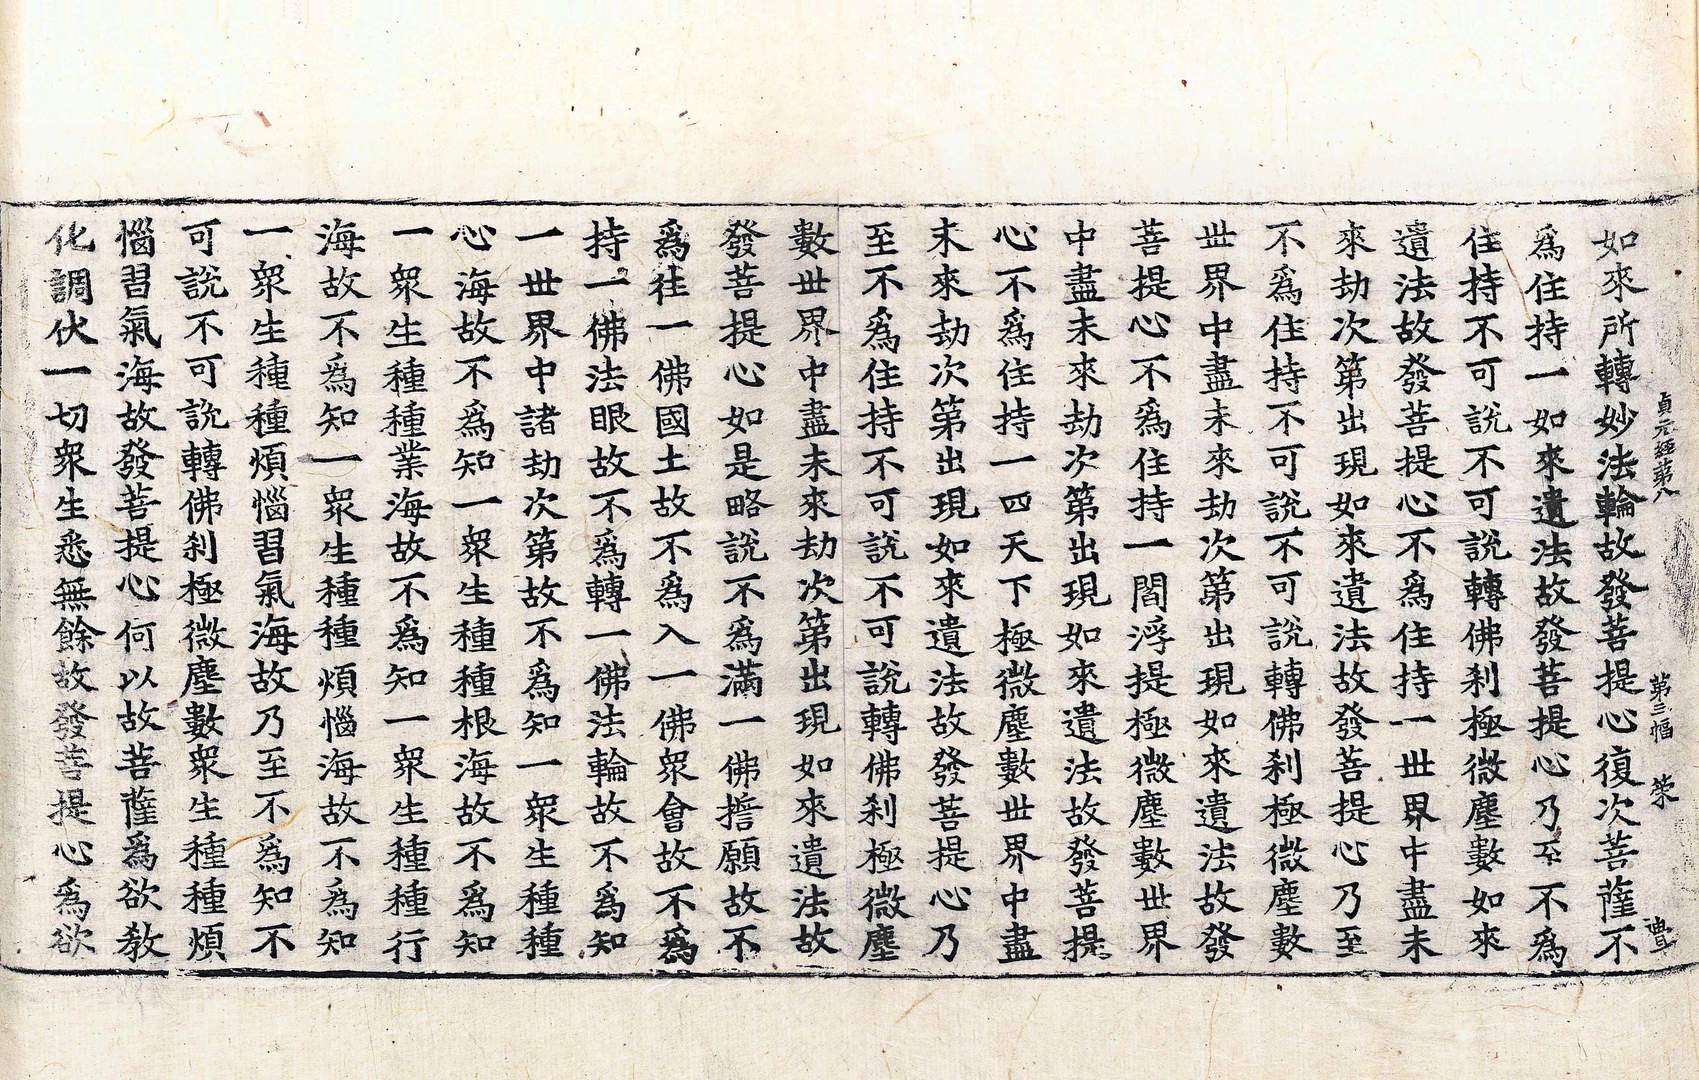 貞元經第八　第三幅　榮　豊
如來所轉妙法輪故發菩提心復次菩薩不
爲住持一如來遺法故發菩提心乃至不爲
住持不可說不可說轉佛刹極微塵數如來
遺法故發菩提心不爲住持一世界中盡未
來劫次第出現如來遺法故發菩提心乃至
不爲住持不可說不可說轉佛刹極微塵數
世界中盡未來劫次第出現如來遺法故發
菩提心不爲住持一閻浮提極微塵數世界
中盡未來劫次第出現如來遺法故發菩提
心不爲住持一四天下極微塵數世界中盡
未來劫次第出現如來遺法故發菩提心乃
至不爲住持不可說不可說轉佛刹極微塵
數世界中盡未來劫次第出現如來遺法故
發菩提心如是略說不爲滿一佛擔願故不
爲往一佛國土故不爲入一佛衆會故不爲
持一佛法眼故不爲轉一佛法輪故不爲知
一世界中諸劫次第故不爲知一衆生種種
心海故不爲知一衆生種種根海故不爲知
一衆生種種業海故不爲知一衆生種種行
海故不爲知一衆生種種煩惱海故不爲知
一衆生種種煩惱習氣海故乃至不爲知不
可說不可說轉佛刹極微塵數衆生種種煩
惱習氣海故發菩提心何以故菩薩爲欲教
化調伏一切衆生悉無餘故發菩提心爲欲